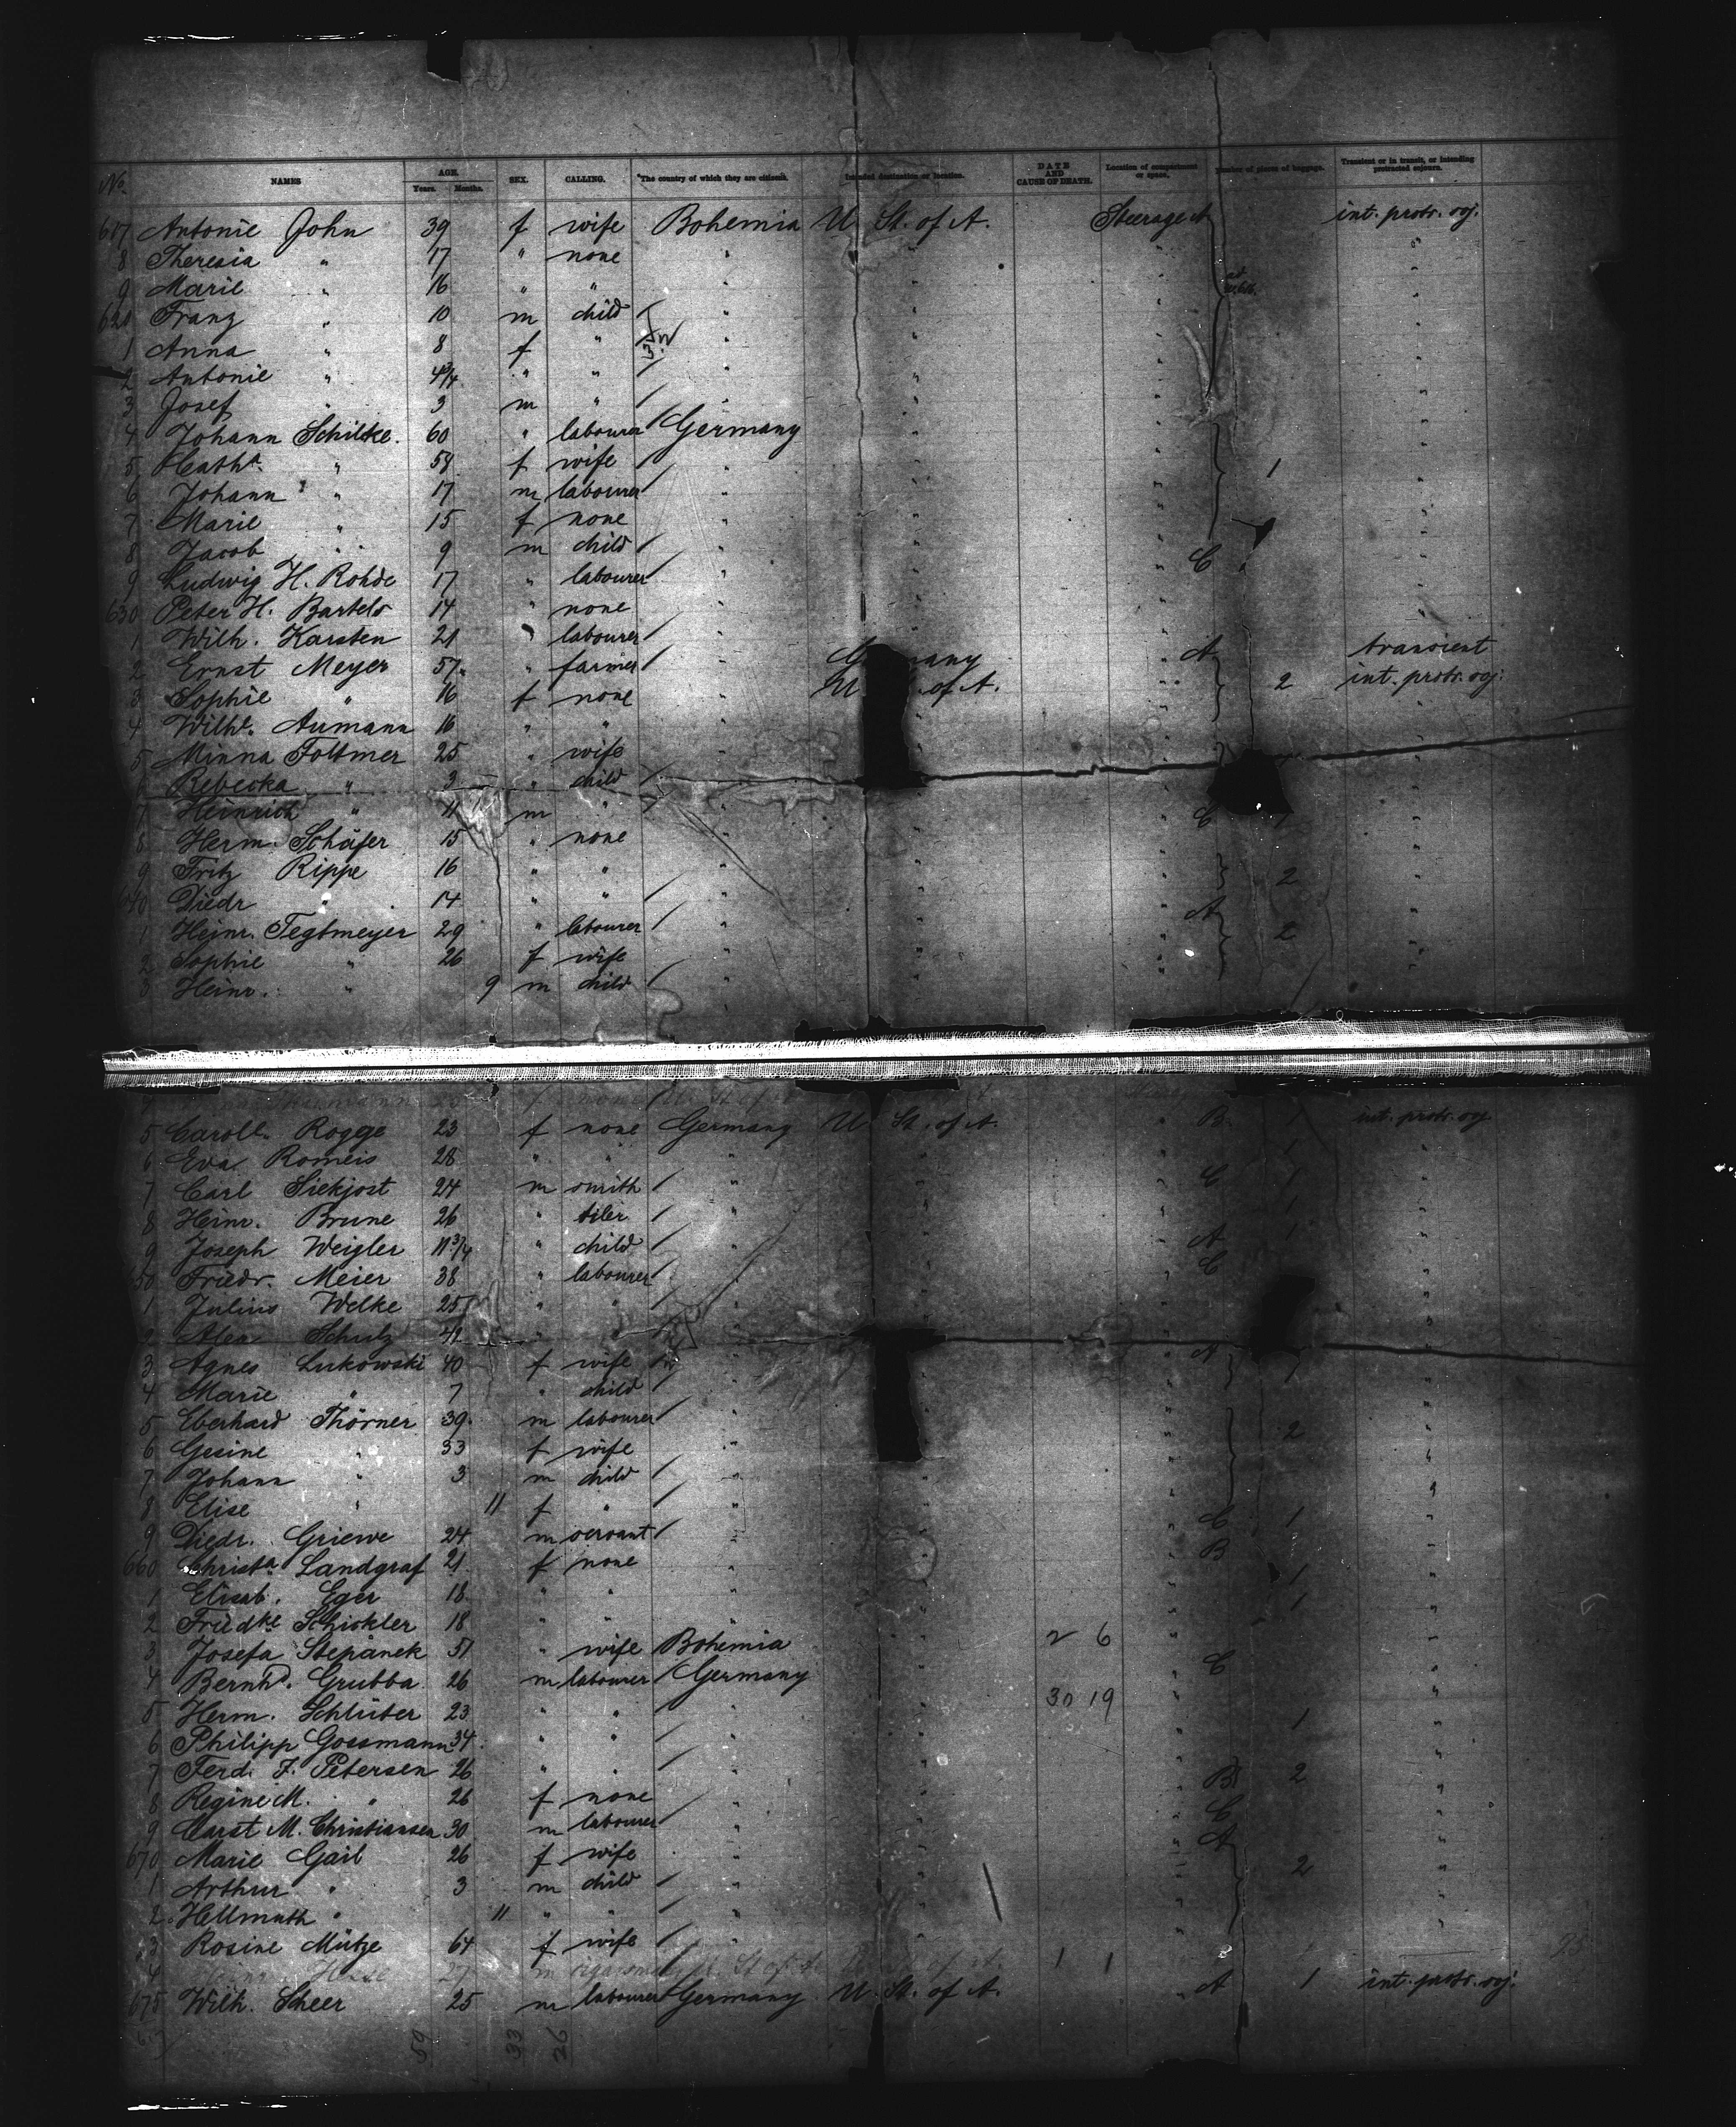 No. NAMES AGE. Years. Months. SEX. CALLING. *The country of which they are citizens. Intended destination or location. DATE AND CAUSE OF DEATH. Location of compartment or space. Number of pieces of baggage. Transient or in transit, or intending protracted sojourn.
617 Antonie John 39 f wife Bohemia U. St. of A. Steerage A int. protr. soj.
8 Theresia " 17 " none " " " "
9 Marie " 16 " " " " " "
620 Franz " 10 m child " " " "
1 Anna " 8 f " " " "
2 Antonie " 4 3/4 " " " " " "
3 Josef " 3 m " " " " "
4 Johann Schiltke. 60 " labourer Germany " " "
5 Cath.a " 59 f wife " " " 1 "
6 Johann " 17 m labourer " " " "
7 Marie " 15 f none " " " "
8 Jacob " 9 m child " " " "
9 Ludwig H. Rohde 17 " labourer " " " C "
630 Peter H. Bartels 14 " none " " " "
1 Wilh. Karsten 21 " labourer " " "
2 Ernst Meyer 57 " farmer " Germany " A transient
3 Sophie " 16 f none " U. St. of A. " 2 int. protr. soj.
4 Wilh.e Aumann 16 " " " " " "
5 Minna Foltmer 25 " wife " " "
6 Rebecka " 3 " child " " "
7 Heinrich " 11 m " " " " "
8 Herm. Schäfer 15 " none " " " C 1 "
9 Fritz Rippe 16 " " " " " 2 "
640 Diedr " 14 " " " " " "
1 Heinr. Tegtmeyer 29 " labourer " " " A 2 "
2 Sophie " 26 f wife " " " "
3 Heinr. " 9 m child " " " "
f none
5 Caroll. Rogge 23 f none Germany U. St. of A. " B. 1 int. protr. soj.
6 Eva Romeis 28 " " " " " 1 "
7 Carl Siekjost 24 m smith " " " C 1 "
8 Heinr. Brune 26 " tiler " " " 1 "
9 Joseph Weigler 11 3/4 " child " " " A "
650 Friedr. Meier 38 " labourer " " " C "
1 Julius Welke 25 " " " " " "
2 Alex Schulz 42 " " " "
3 Agnes Lukowski 40 f wife " " " A 1 "
4 Marie " 7 " child " " " "
5 Eberhard Thörner 39 m labourer " " " 2 "
6 Gesine " 33 f wife " " " "
7 Johann " 3 m child " " " "
8 Elise " 11 f " " " " "
9 Diedr. Griewe 24 m servant " " " C 1 "
660 Christ.a Landgraf 21 f none " " " B 1 "
1 Elisab. Eger 18 " " " " " 1 "
2 Friedke Schickler 18 " " " " " "
3 Josefa Stepánek 51 " wife Bohemia " 2 6 " "
4 Bernhd. Grubba 26 m labourer Germany " " C "
5 Herm. Schlüter 23 " " " " 30 19 " 1 "
6 Philipp Gossmann 34 " " " " " "
7 Ferd. F. Petersen 26 " " " " " B 2 "
8 Regine M. " 26 f none " " " "
9 Carst M. Christiansen 30 m labourer " " " C "
670 Marie Gail 26 f wife " " " A 2 "
1 Arthur " 3 m child " " " "
2 Hellmuth " 11 " " " " " "
3 Rosine Mütze 64 f wife " " " "
4 27 m St. of A. U. St. of A. 1 1
675 Wilh. Scheer 25 m labourer Germany U. St. of A. A 1 int. protr. soj.
59 33 26